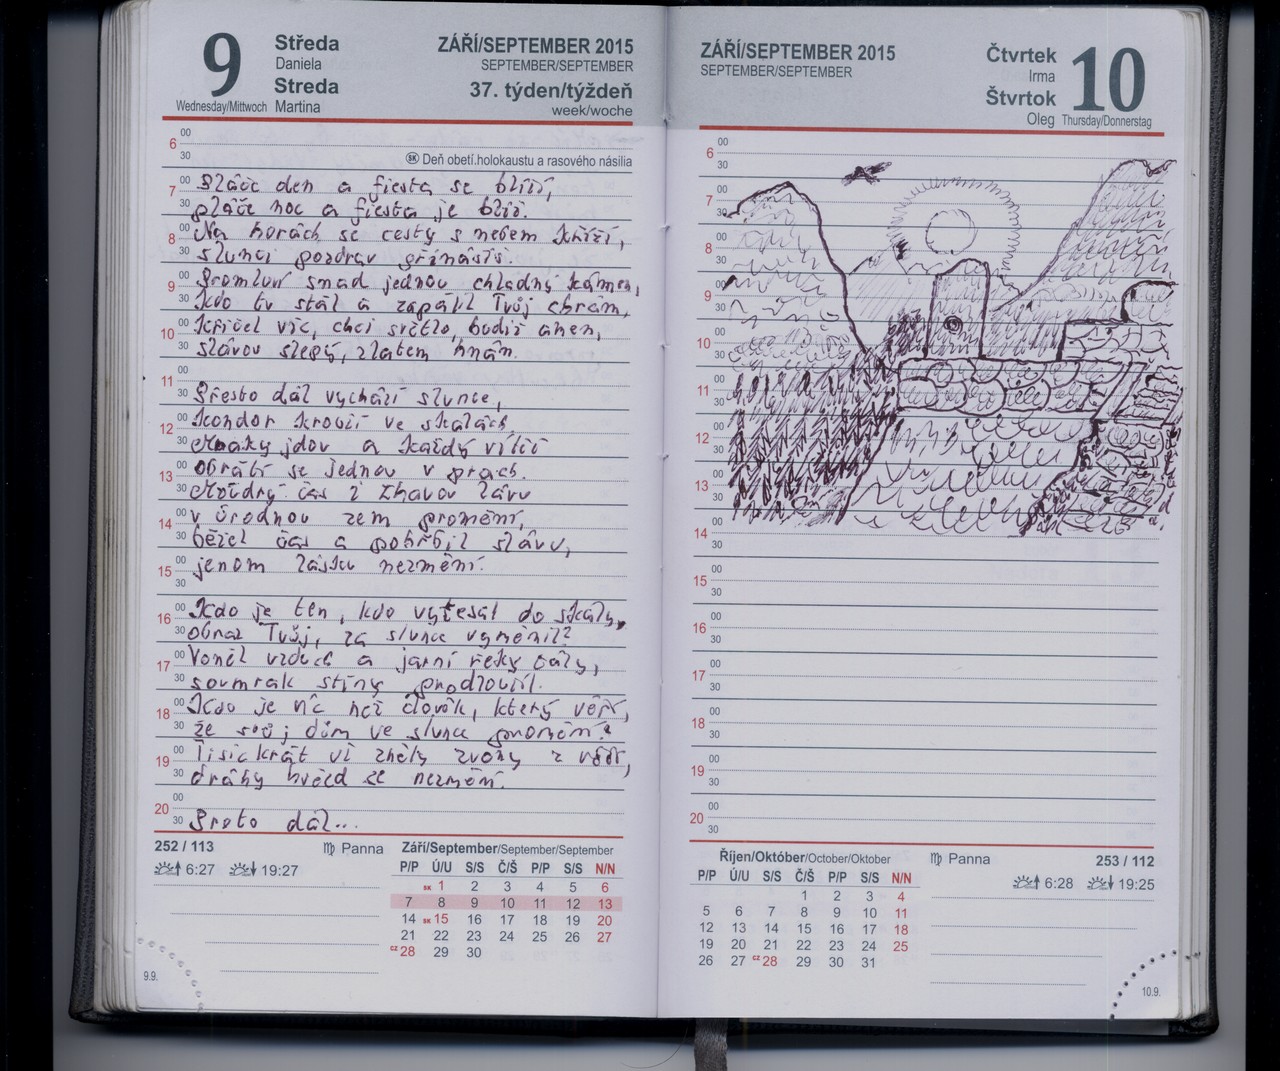 9
Středa
Daniela
Streda
Wednesday/Mittwoch Martina
ZÁŘÍ/SEPTEMBER 2015
SEPTEMBER/SEPTEMBER
37. týden/týždeň
week/woche
6 00
30 SK Deň obetí.holokaustu a rasového násilia
7 00 Pláče den a fiesta se blíží,
30 pláče noc a fiesta je blíž.
8 00 Na horách se cesty s nebem kříží,
30 slunci pozdrav přinášíš.
9 00 Promluví snad jednou chladný kámen,
30 kdo tu stál a zapálil Tvůj chrám,
10 00 křičel víc, chci světlo, budiž amen,
30 slávou slepý, zlatem hnán.
11 00
30 Přesto dál vychází slunce,
12 00 kondor krouží ve skalách
30 Mraky jdou a každý vítěz
13 00 obrátí se jednou v prach.
30 Moudrý čas i žhavou lávu
14 00 v úrodnou zem promění,
30 běžel čas a pohřbil slávu,
15 00 jenom lásku nezmění.
30
16 00 Kdo je ten, kdo vytesal do skály,
30 obraz Tvůj, za slunce vyměnil?
17 00 Voněl vzduch a jarní řeky hřály,
30 soumrak stíny prodloužil.
18 00 Kdo je víc než člověk, který věří,
30 že svůj dům ve slunce promění?
19 00 Tisíckrát už zněly zvony z věží,
30 dráhy hvězd se nezmění.
20 00
30 Proto dál...
252 / 113
Panna
6:27 19:27
Září/September/September/September
P/P Ú/U S/S Č/Š P/P S/S N/N
SK 1 2 3 4 5 6
7 8 9 10 11 12 13
14 SK 15 16 17 18 19 20
21 22 23 24 25 26 27
CZ 28 29 30
9.9.
ZÁŘÍ/SEPTEMBER 2015
SEPTEMBER/SEPTEMBER
Čtvrtek
Irma
Štvrtok
Oleg Thursday/Donnerstag
10
6 00
30
7 00
30
8 00
30
9 00
30
10 00
30
11 00
30
12 00
30
13 00
30
14 00
30
15 00
30
16 00
30
17 00
30
18 00
30
19 00
30
20 00
30
Říjen/Október/October/Oktober
P/P Ú/U S/S Č/Š P/P S/S N/N
1 2 3 4
5 6 7 8 9 10 11
12 13 14 15 16 17 18
19 20 21 22 23 24 25
26 27 CZ 28 29 30 31
Panna
253 / 112
6:28 19:25
10.9.